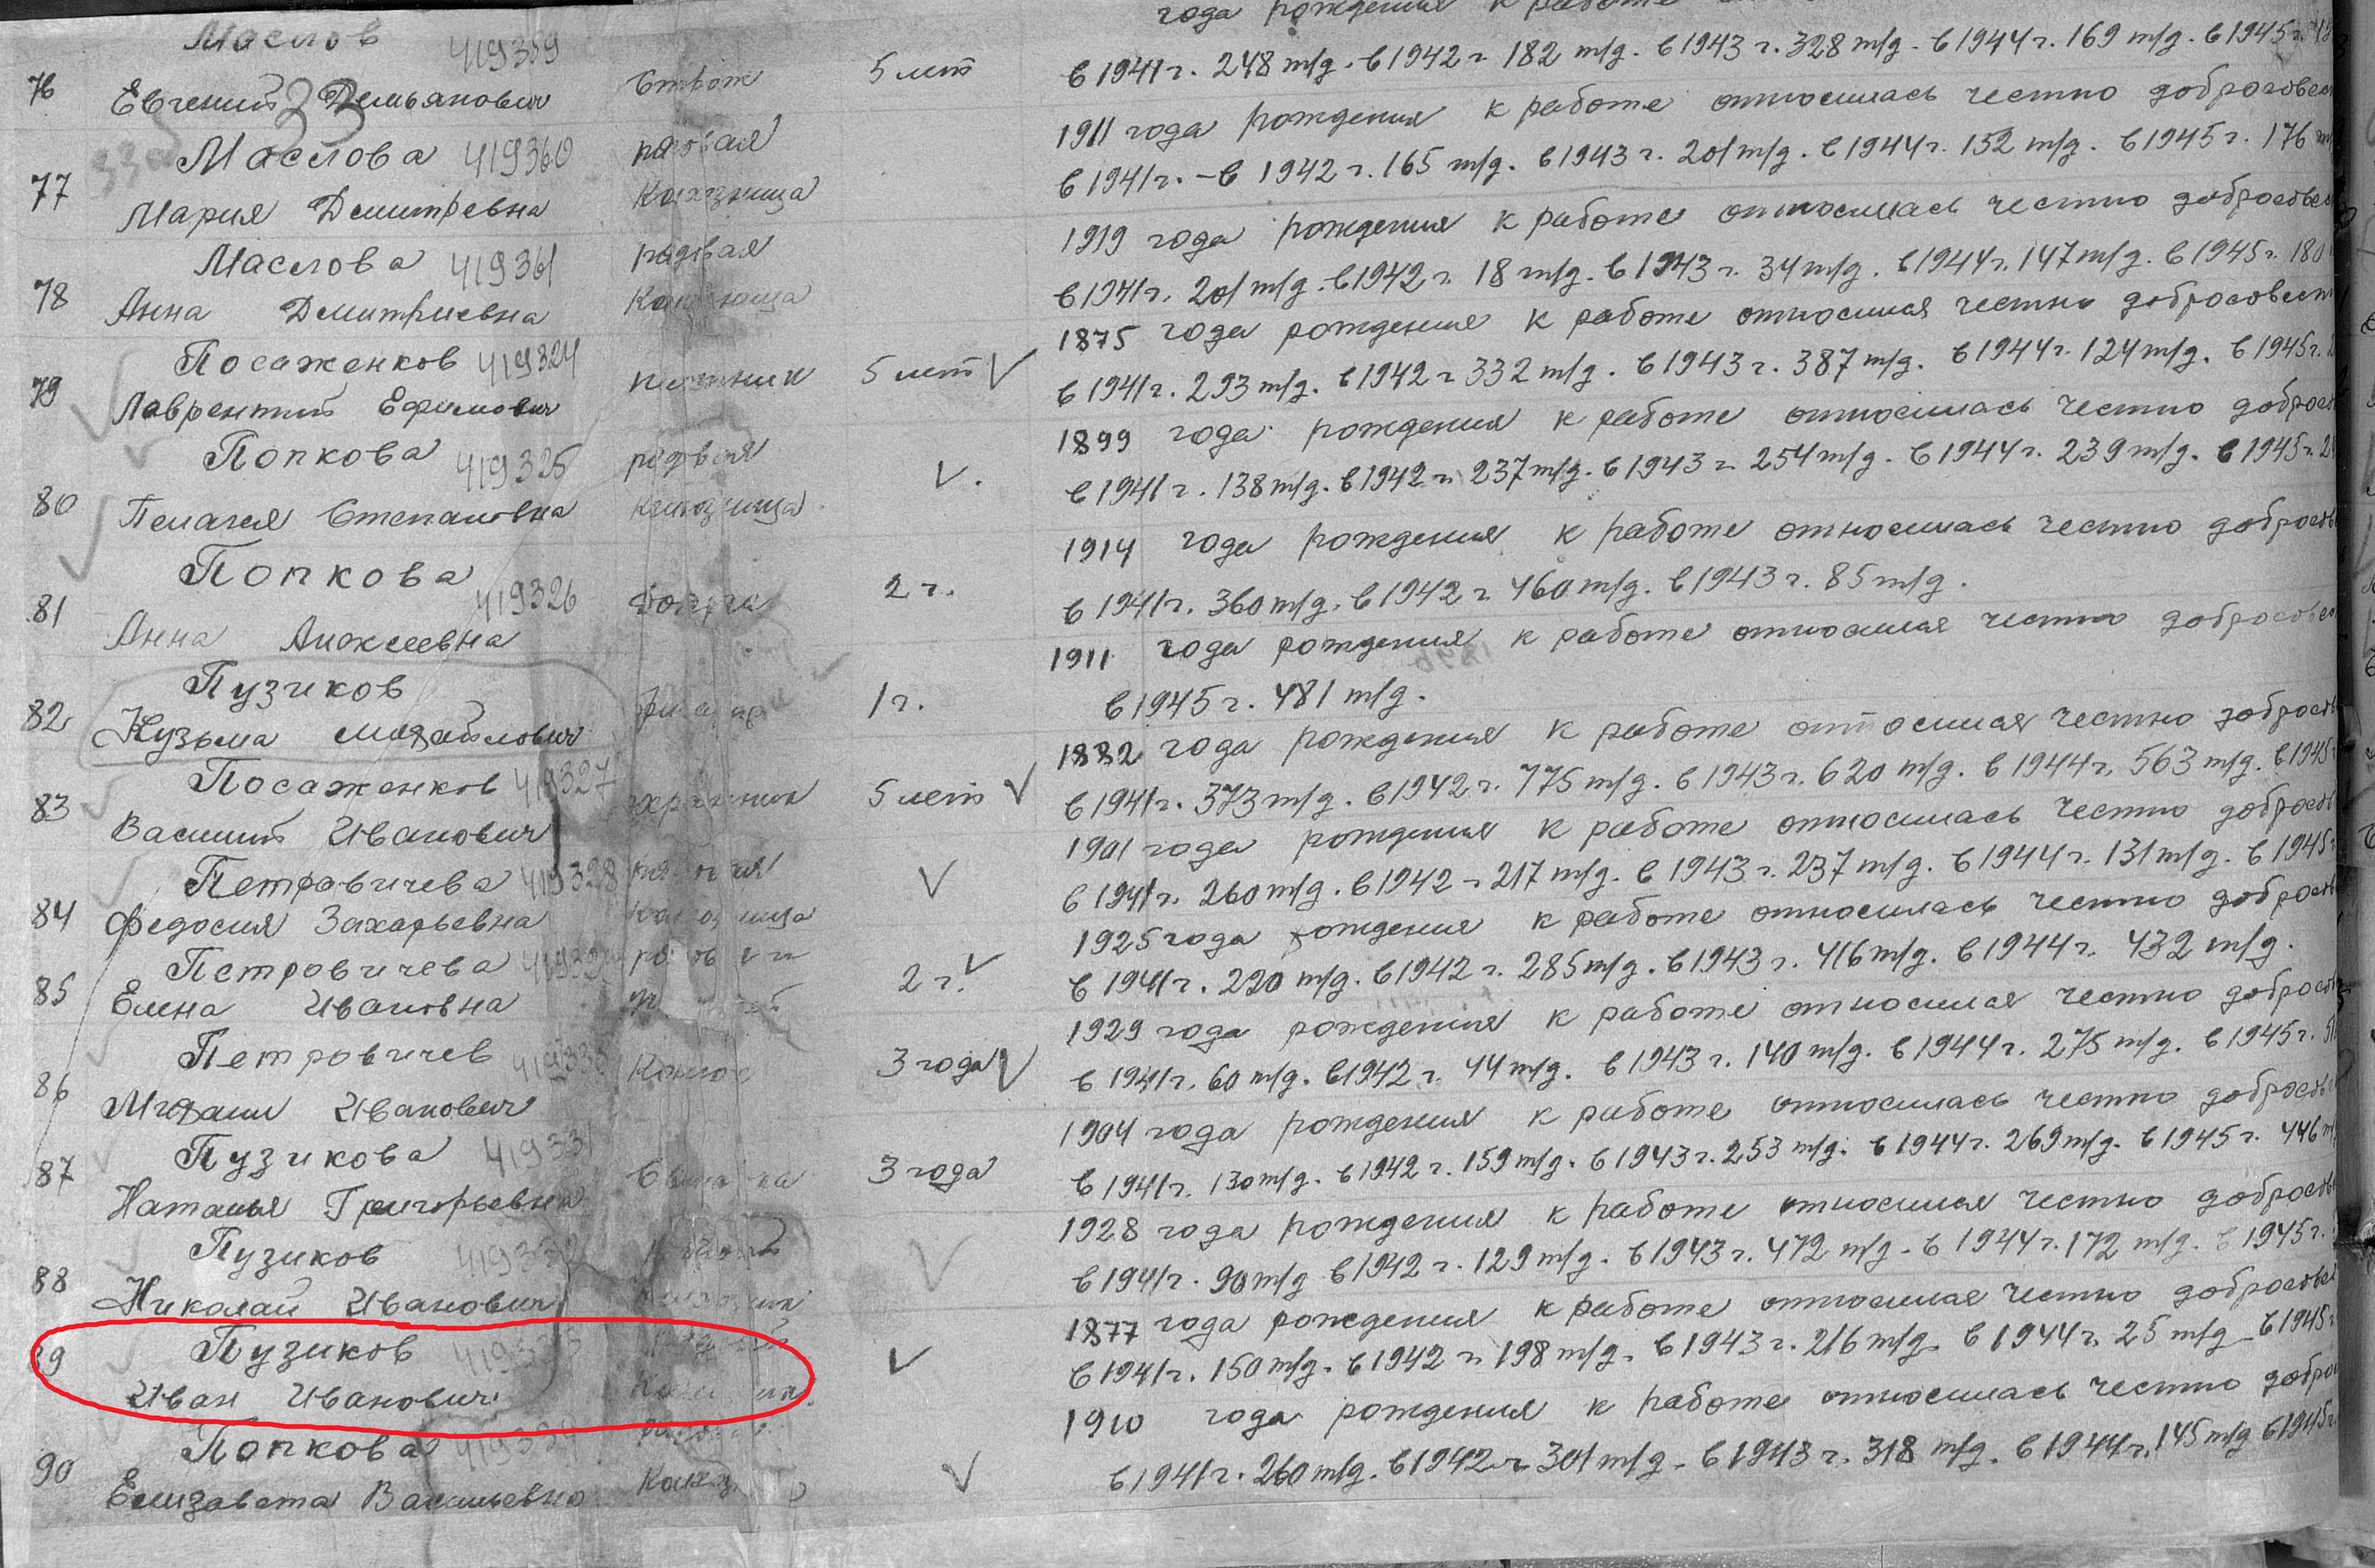 года рождения к работе
Маслов 419359
в 1941 г. 248 т/д. в 1942 г. 182 т/д. в 1943 г. 328 т/д. в 1944 г. 169 т/д. в 1945 г.
76 Евгений Демьянович 33 5 лет
1911 года рождения к работе относилась честно
Маслова 419360 рядовая
77 Мария Дмитревна Колхозница
в 1941 г. – в 1942 г. 165 т/д. в 1943 г. 201 т/д. в 1944 г. 152 т/д. в 1945 г. 176
1919 года рождения к работе относилась честно
Маслова 419361 рядовая
78 Анна Дмитриевна
в 1941 г. 201 т/д. в 1942 г. 18 т/д. в 1943 г. 34 т/д. в 1944 г. 147 т/д. в 1945 г. 180
1875 года рождения к работе относился честно
Посаженков 419324
79 Лаврентий Ефимович 5 лет
в 1941 г. 293 т/д. в 1942 г 332 т/д. в 1943 г. 387 т/д. в 1944 г. 124 т/д. в 1945 г.
1899 года рождения к работе относилась честно
Попкова 419325 рядовая
80 Пелагея Степановна
в 1941 г. 138 т/д. в 1942 г. 237 т/д. в 1943 г. 254 т/д. в 1944 г. 239 т/д. в 1945 г.
1914 года рождения к работе относилась честно
Попкова 419326
81 Анна Алексеевна 2 г.
в 1941 г. 360 т/д. в 1942 г 460 т/д. в 1943 г. 85 т/д.
1911 года рождения к работе относился честно
Пузиков
82 Кузьма Михайлович 1 г.
в 1945 г. 481 т/д.
1882 года рождения к работе относился честно
Посаженков 419327
83 Василий Иванович 5 лет
в 1941 г. 373 т/д. в 1942 г. 775 т/д. в 1943 г. 620 т/д. в 1944 г. 563 т/д. в 1945
1901 года рождения к работе относилась честно
Петровичева 419328
84 Федосия Захарьевна
в 1941 г. 260 т/д. в 1942 г 217 т/д. в 1943 г. 237 т/д. в 1944 г. 131 т/д. в 1945
1925 года рождения к работе относилась честно
Петровичева
85 Елена Ивановна 2 г.
в 1941 г. 220 т/д. в 1942 г. 285 т/д. в 1943 г. 416 т/д. в 1944 г. 432 т/д.
1929 года рождения к работе относился честно
Петровичев
86 Михаил Иванович 3 года
в 1941 г. 60 т/д. в 1942 г. 44 т/д. в 1943 г. 140 т/д. в 1944 г. 275 т/д. в 1945 г.
1904 года рождения к работе относилась честно
Пузикова 419331
87 Наталья Григорьевна 3 года
в 1941 г. 130 т/д. в 1942 г. 159 т/д. в 1943 г. 253 т/д. в 1944 г. 269 т/д. в 1945 г. 446
1928 года рождения к работе относился честно
Пузиков
88 Николай Иванович
в 1941 г. 90 т/д в 1942 г. 129 т/д. в 1943 г. 472 т/д. в 1944 г. 172 т/д. в 1945 г.
1877 года рождения к работе относился честно
Пузиков
Иван Иванович
в 1941 г. 150 т/д. в 1942 г. 198 т/д. в 1943 г. 216 т/д. в 1944 г. 25 т/д в 1945
1910 года рождения к работе относилась честно
Попкова
90 Елизавета Васильевна
в 1941 г. 260 т/д. в 1942 г 301 т/д. в 1943 г. 318 т/д. в 1944 г. 145 т/д в 1945 г